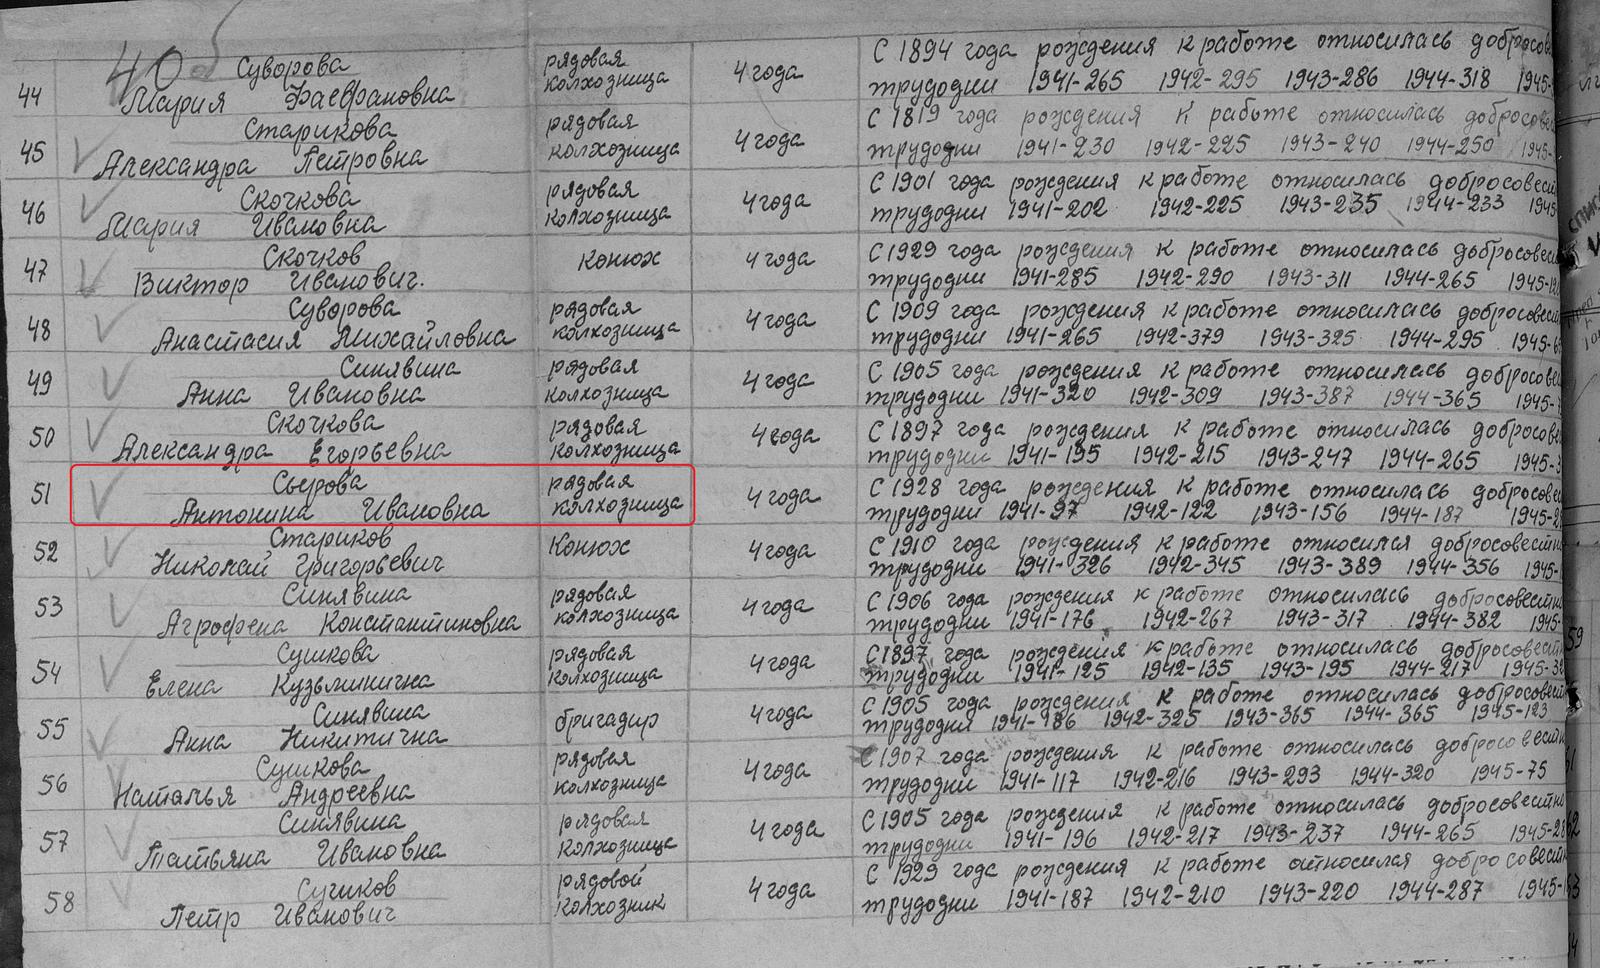 40
44 Суворова рядовая 4 года С 1894 года рождения к работе относилась добросов
Мария колхозница трудодни 1941-265 1942-295 1943-286 1944-318 1945-
45 Старикова рядовая 4 года С 1819 года рождения к работе относилась добросов
Александра Петровна колхозница трудодни 1941-230 1942-225 1943-240 1944-250 1945-
46 Скочкова рядовая 4 года С 1901 года рождения к работе относилась добросовест
Мария Ивановна колхозница трудодни 1941-202 1942-225 1943-235 1944-233 1945-
47 Скочков конюх 4 года С 1929 года рождения к работе относилась добросове
Виктор Иванович. трудодни 1941-285 1942-290 1943-311 1944-265 1945-
48 Суворова рядовая 4 года С 1909 года рождения к работе относилась добросове
Анастасия Михайловна колхозница трудодни 1941-265 1942-379 1943-325 1944-295 1945-
49 Синявина рядовая 4 года С 1905 года рождения к работе относилась добросове
Анна Ивановна колхозница трудодни 1941-320 1942-309 1943-387 1944-365 1945-
50 Скочкова рядовая 4 года С 1897 года рождения к работе относилась добросове
Александра Егорьевна колхозница трудодни 1941-195 1942-215 1943-247 1944-265 1945-
51 Сьерова рядовая 4 года С 1928 года рождения к работе относилась добросове
Антонина Ивановна колхозница трудодни 1941-97 1942-122 1943-156 1944-187 1945-
52 Стариков Конюх 4 года С 1910 года рождения к работе относился добросовестн
Николай Григорьевич трудодни 1941-326 1942-345 1943-389 1944-356 1945-
53 Синявина рядовая 4 года С 1906 года рождения к работе относилась добросовестн
Агрофена Константиновна колхозница трудодни 1941-176 1942-267 1943-317 1944-382 1945-
54 Сушкова рядовая 4 года С 1897 года рождения к работе относилась добросовестн
Елена Кузьминична колхозница трудодни 1941-125 1942-135 1943-195 1944-217 1945-32
55 Синявина бригадир 4 года С 1905 года рождения к работе относилась добросовест
Анна Никитична трудодни 1941-186 1942-325 1943-365 1944-365 1945-123
56 Сушкова рядовая 4 года С 1907 года рождения к работе относилась добросовестн
Наталья Андреевна колхозница трудодни 1941-117 1942-216 1943-293 1944-320 1945-75
57 Синявина рядовая 4 года С 1905 года рождения к работе относилась добросовестно
Татьяна Ивановна колхозница трудодни 1941-196 1942-217 1943-237 1944-265 1945-28
58 Сучков рядовой 4 года С 1929 года рождения к работе относился добросовестн
Петр Иванович колхозник трудодни 1941-187 1942-210 1943-220 1944-287 1945-
59